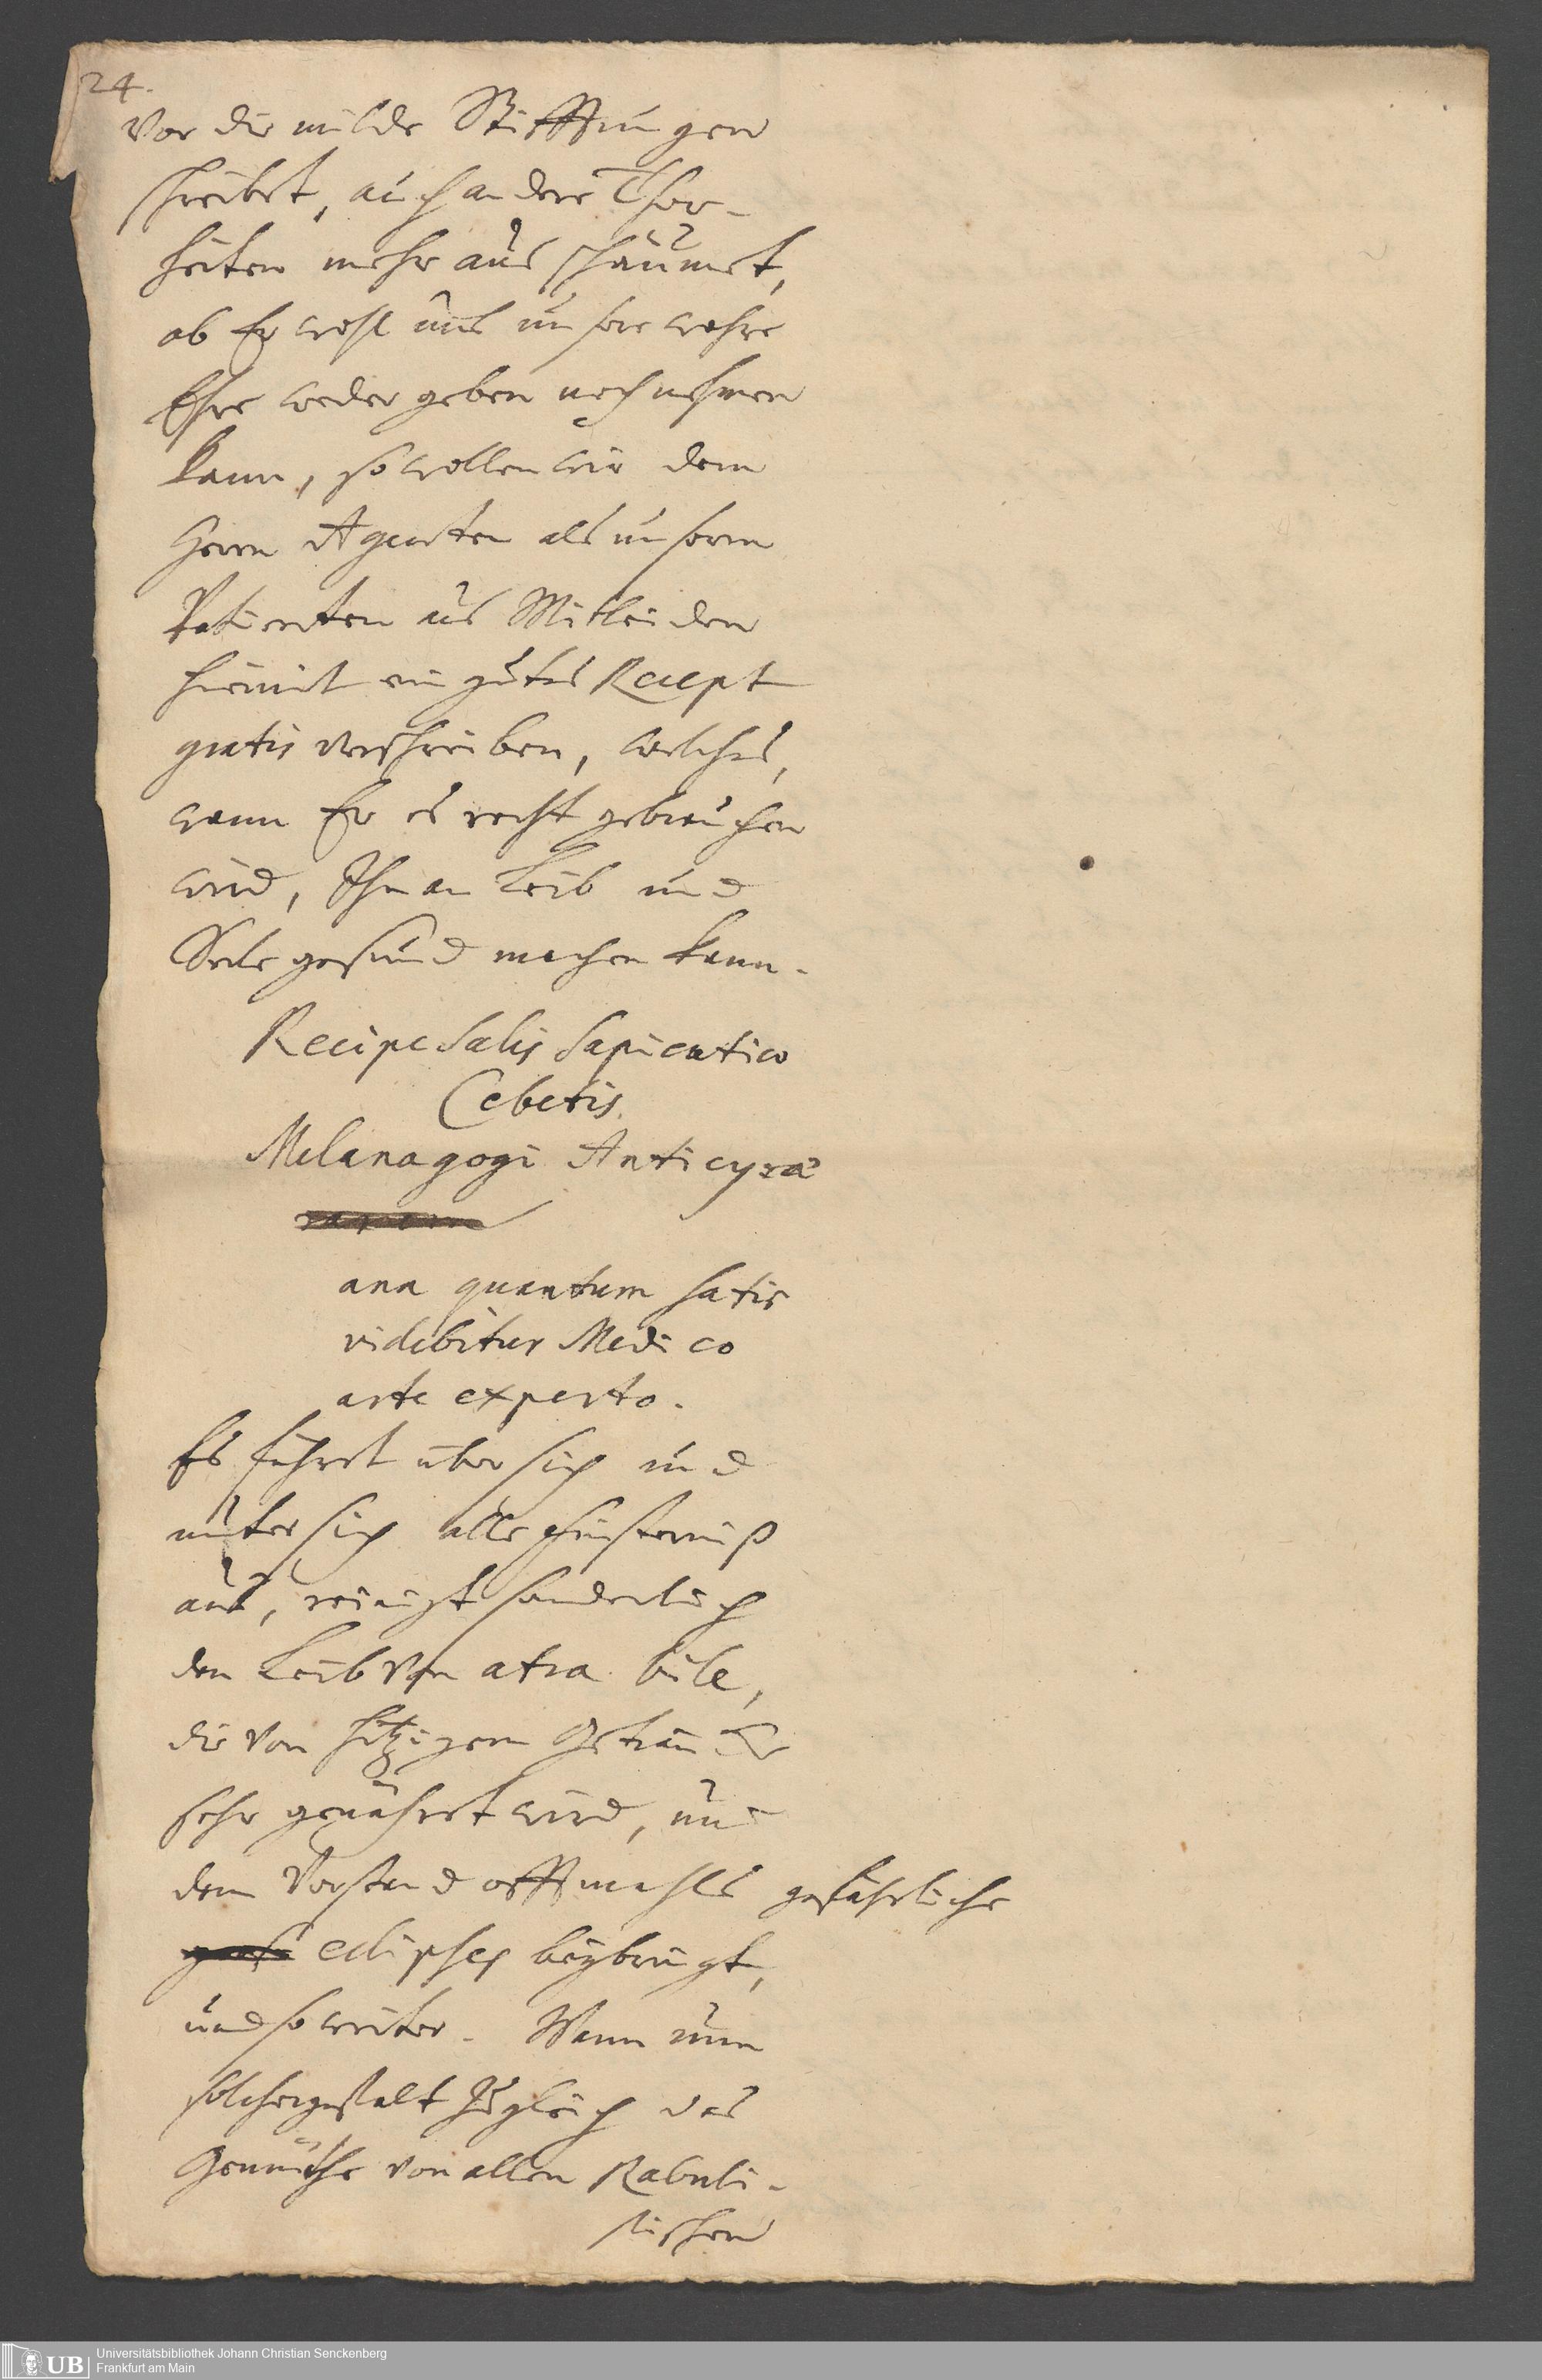 24.
Vor die milde Stifftungen
schreibet, auch andere Thor-
heiten mehr aus schäumet,
ob Er wohl uns unsere wahre
Ehre weder geben noch nehmen
kann, so wollen wir dem
Herrn Agenten als unserm
Patienten aus Mitleiden
hiemit ein gutes Recept
gratis verschreiben, welches,
wann Er es recht gebrauchen
wird, Ihn an Leib und
Seele gesund machen kann.
Recipe Salis Sapientico
Cebetis
Melanagogi Anticyrae
ana quantum satis
videbitur Medico
arte experto.
Es führet über sich und
unter sich alle Finsterniß
aus, reinigt sonderlich
den Leib von atra bile,
die von hitzigem Geträncke
sehr genähret wird, und
dem Verstand offtmahls gefährliche
eclipses beybringt,
und so weiter. Wann nun
solchergestalt zugleich das
Gemüthe von allen Rabuli-
stischen
Universitätsbibliothek Johann Christian Senckenberg
Frankfurt am Main
UB